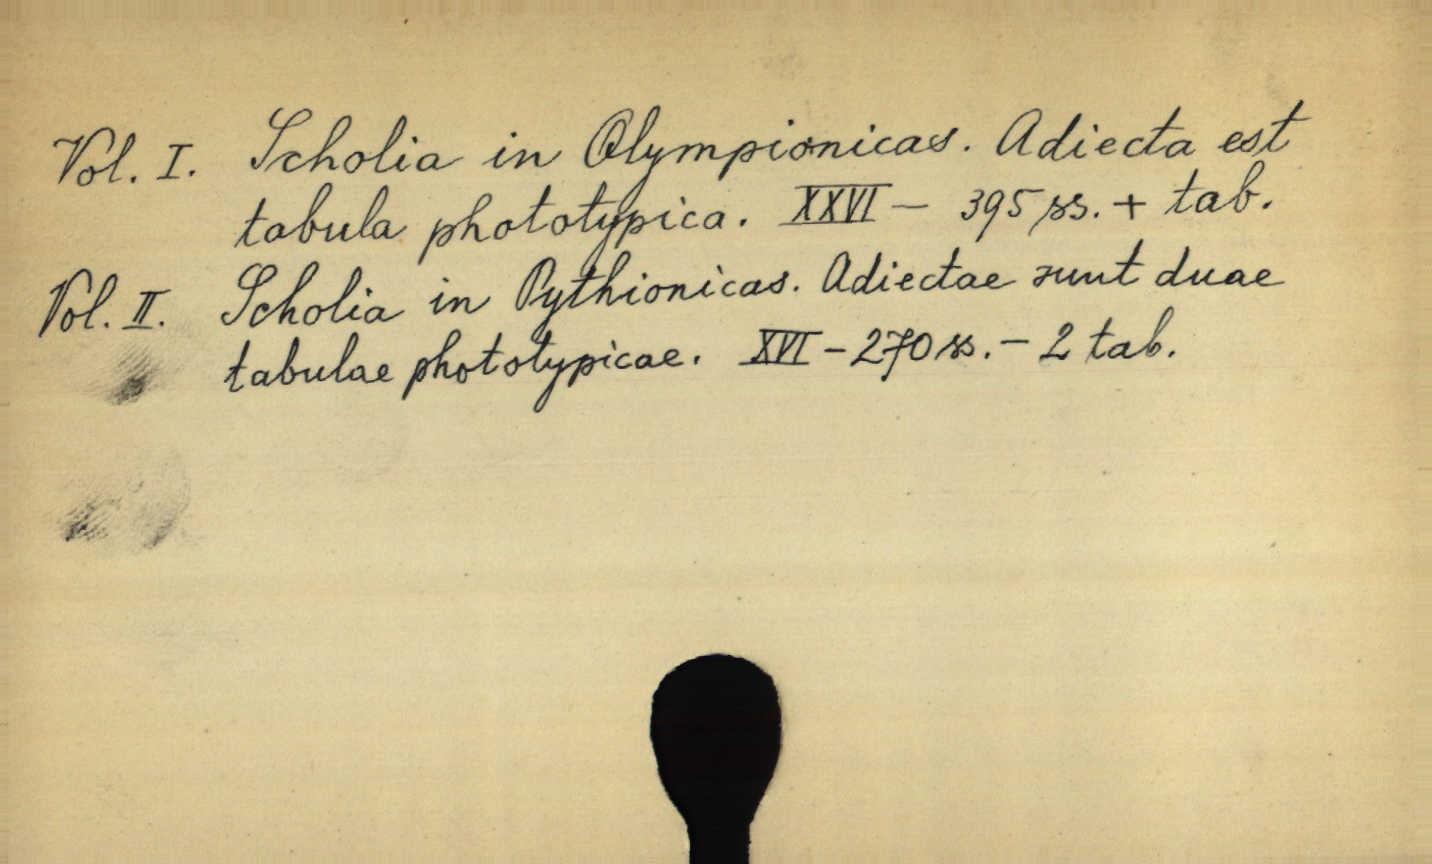 Vol. I. Scholia in Olympionicas. Adiecta est
tabula phototypica. XXVI — 395 ss. + tab.
Vol. II. Scholia in Pythionicas. Adiectae sunt duae
tabulae phototypicae. XVI – 270 ss. – 2 tab.